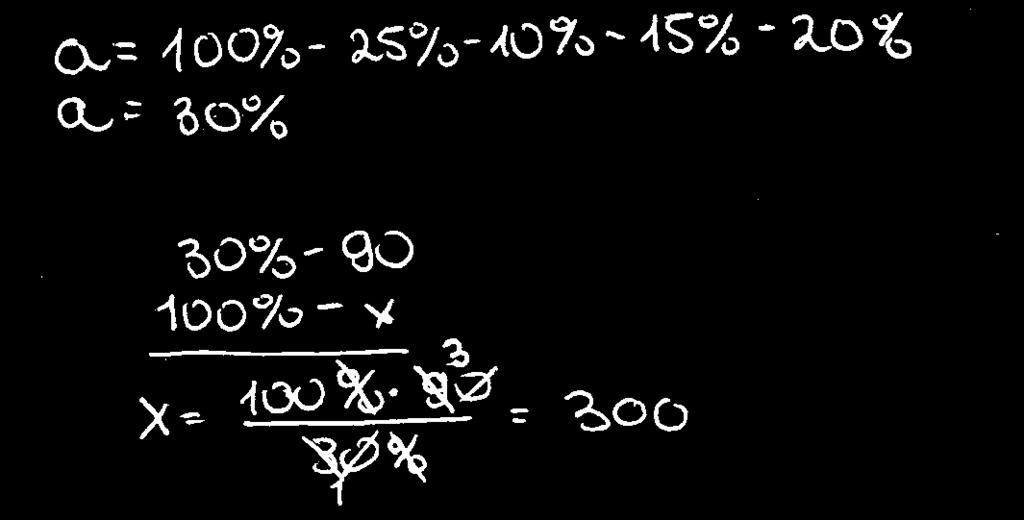 a = 100% - 25% - 10% - 15% - 20%
a = 30%
30% - 90
100% - x
x = 100% · 90 3 / 30% 1 = 300